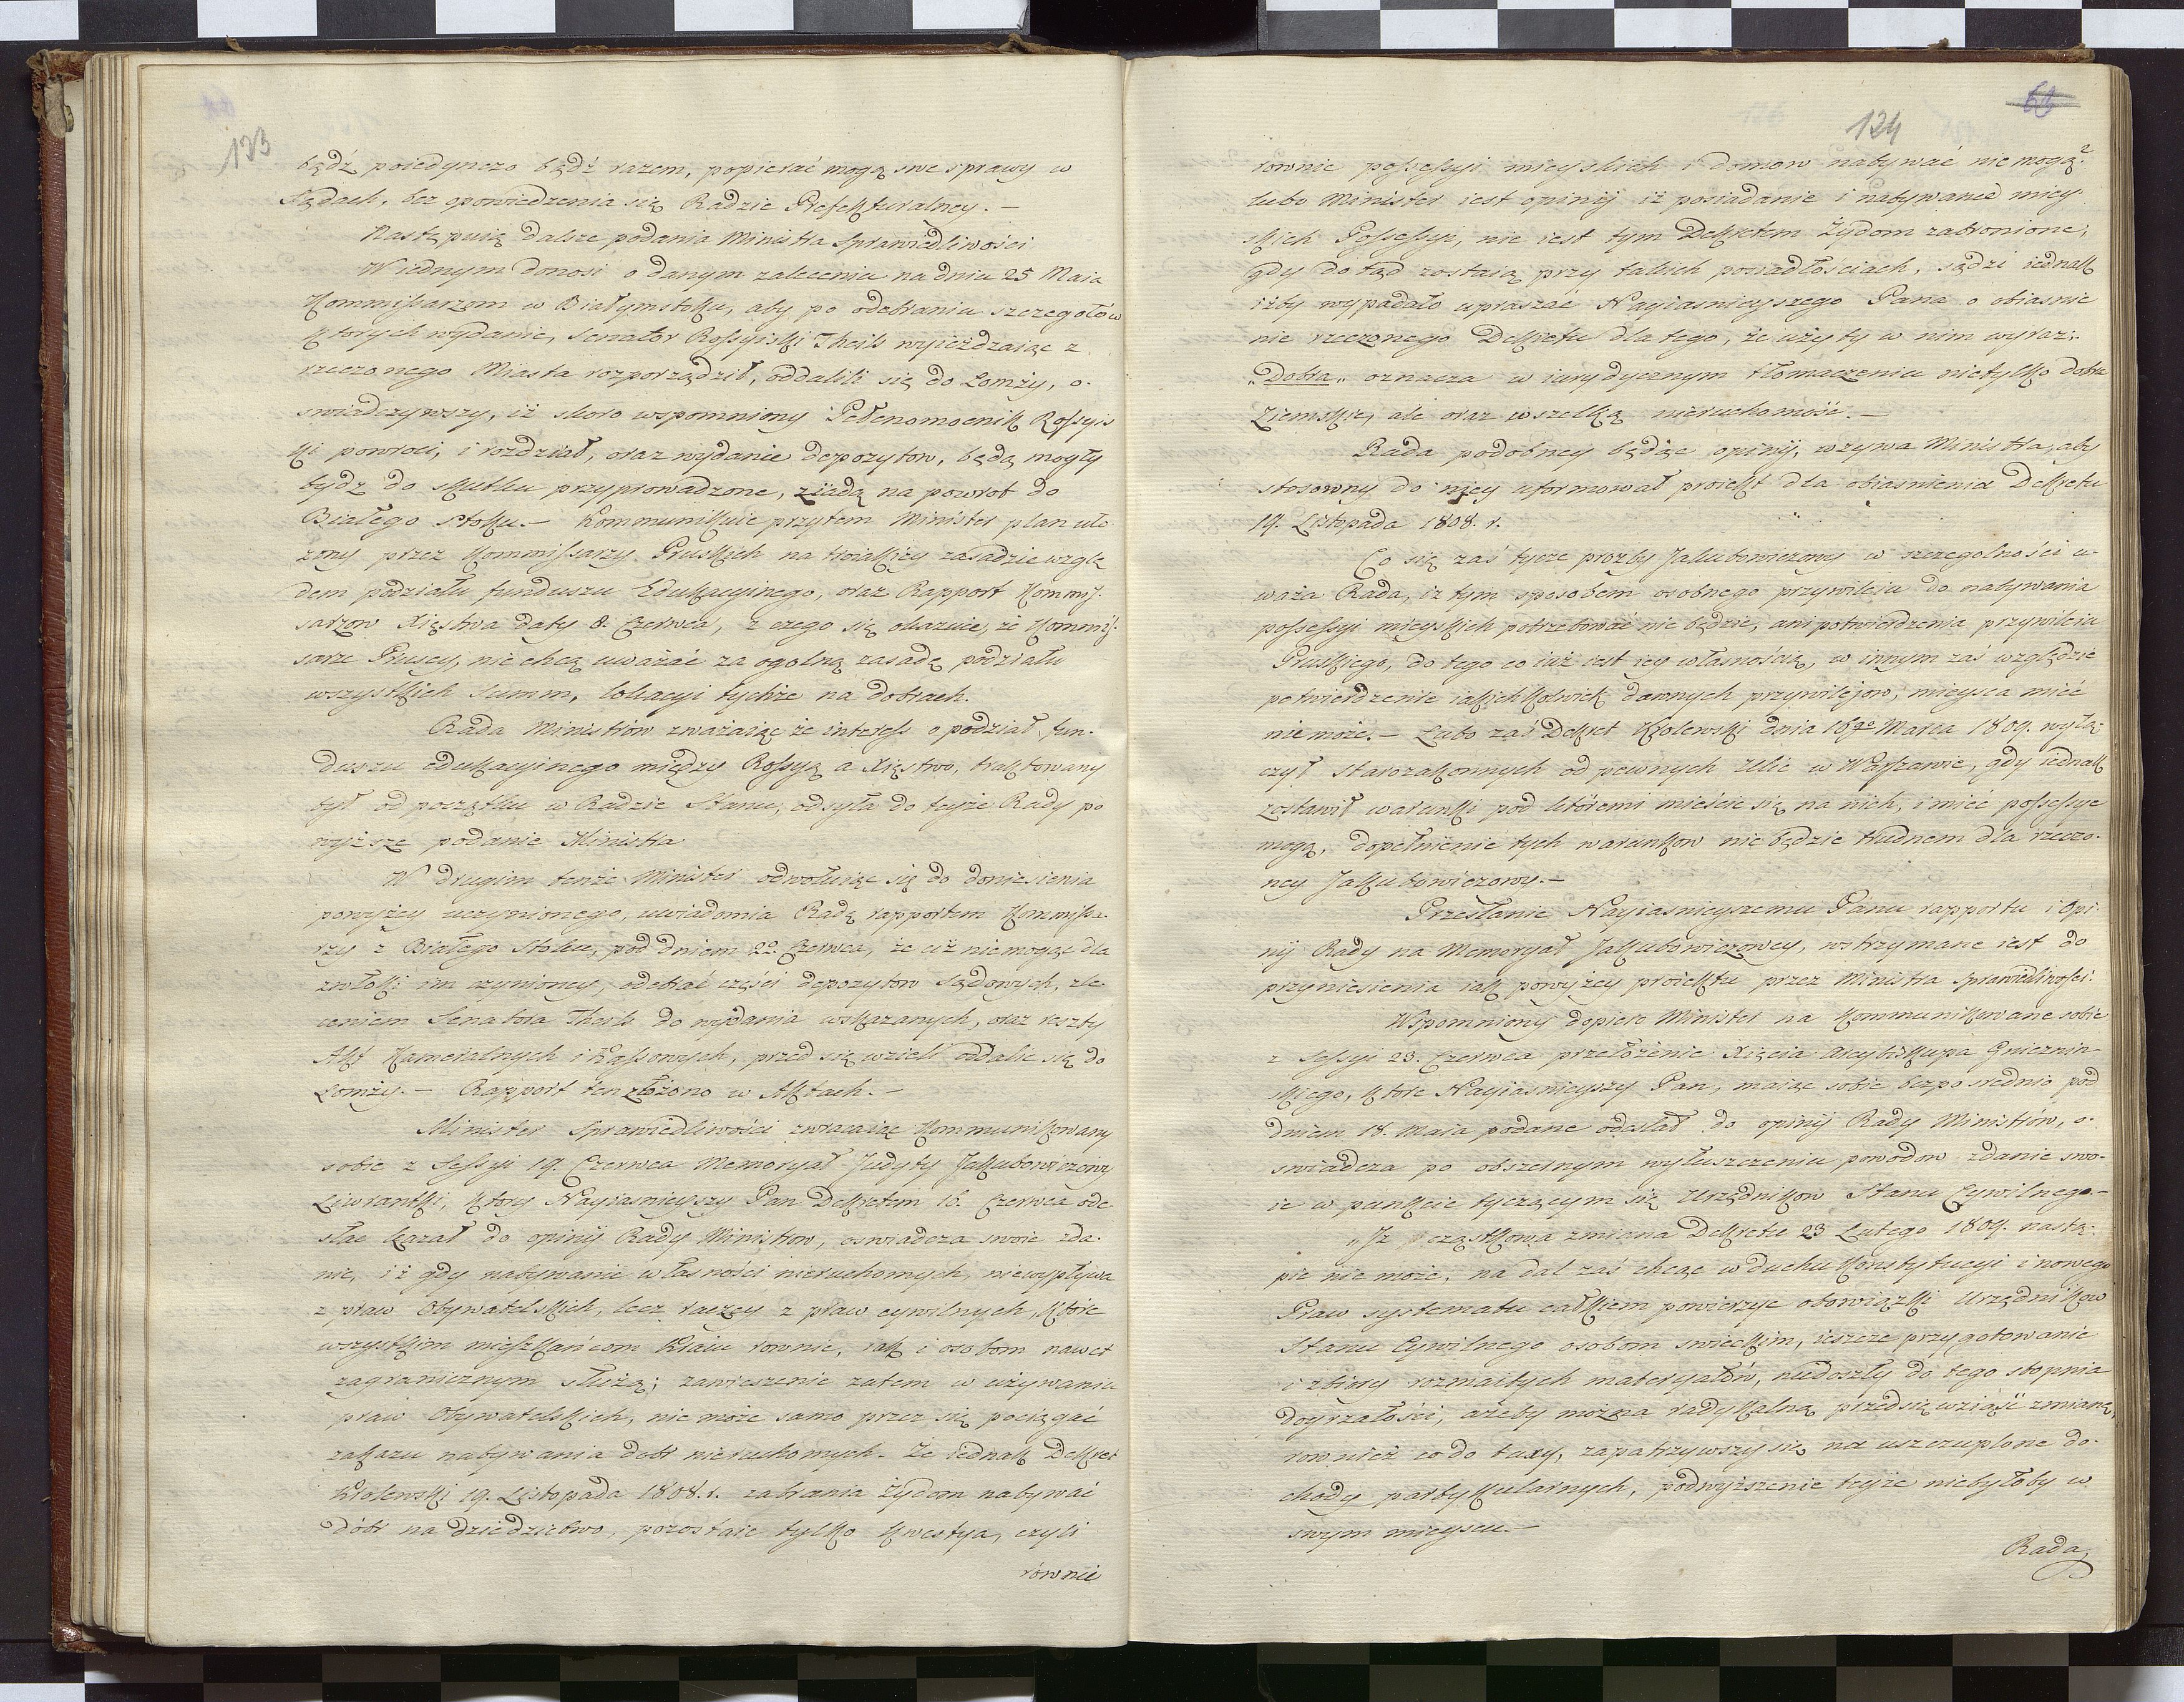 123
bądź poiedynczo bądź razem, popierać mogą swe sprawy w
Sądach, bez opowiedzenia się Radzie Prefekturalney. —
Następuią dalsze podania Ministra Sprawiedliwości
W iednym donosi o danym zaleceniu na dniu 25 Maia
Kommissarzom w Białymstoku, aby po odebraniu szczegołow
ktorych wydanie, Senator Rossyiski Theils wyieżdzaiąc z
rzeczonego Miasta rozporządził, oddalili się do Łomży, o-
swiadczywszy, iż skoro wspomniony Pełnomocnik Rossyis
ki powroci, i rozdział, oraz wydanie depozytow, będą mogły
bydz do skutku przyprowadzone, ziadą na powrot do
Białego Stoku. — Kommunikuie przytem Minister plan uło
żony przez Kommissarzy Pruskich na troiakiey zasadzie wzglę
dem podziału funduszu Edukacyinego, oraz Rapport Kommis-
sarzow Xięstwa daty 8. Czerwca, z czego się okazuie, że Kommis-
sarze Pruscy, nie chcą uważać za ogolną zasadę podziału
wszystkich Summ, lokacyi tychże na dobrach.
Rada Ministrów zważaiąc że interess o podział fun-
duszu edukacyinego między Rossyą a Xięstwo, traktowany
był od początku w Radzie Stanu, odsyła do teyże Rady po
wyższe podanie Ministra
W drugim tenże Minister odwołuiąc się do doniesienia
powyżey uczynionego, uwiadomia Radę rapportem Kommissa-
rzy z Białego Stoku, pod dniem 2o Czerwca, że iuż niemogąc dla
zwłoki im czynioney, odebrać części depozytow Sądowych, zle-
ceniem Senatora Theils do wydania wskazanych, oraz reszty
Akt Kameralnych i Kassowych, przedsięwzieli oddalić się do
Łomży. — Rapport ten złożono w Aktach. —
Minister Sprawiedliwości zwracaiąc kommunikowany
sobie z Sessyi 19. Czerwca Memoryał Judyty Jakubowiczowey
Liwrantki, ktory Nayiasnieyszy Pan Dekretem 16. Czerwca ode
słać kazał do opinij Rady Ministrow, oswiadcza swoie zda-
nie, iż gdy nabywanie własności nieruchomych, niewypływa
z praw Obywatelskich, lecz raczey z praw cywilnych, które
wszystkim mieszkańcom Kraiu rownie, iak i osobom nawet
zagranicznym służą; zawieszenie zatem w używaniu
praw Obywatelskich, nie może samo przez się pociągać
zakazu nabywania dobr nieruchomych. Że iednak Dekret
Krolewski 19. Listopada 1808. r. zabrania żydom nabywać
dóbr na dziedzictwo, pozostaie tylko kwestya, czyli
równie
124
rownie possessyi mieyskich i domow nabywać nie mogą?
lubo Minister iest opinij iż posiadanie i nabywanie miey-
skich Possessyi, nie iest tym Dekretem Żydom zabronione;
gdy dotąd zostaią przy takich posiadłościach, sądzi iednak
iżby wypadało upraszać Nayiasnieyszego Pana o obiasnie
nie rzeczonego Dekretu dla tego, że użyty w nim wyraz:
„Dobra„ oznacza w iurydycznym tłomaczeniu nietylko dobra
Ziemskie, ale oraz wszelką nieruchomość. —
Rada podobney będąc opinij, wzywa Ministra, aby
stosowny do niey uformował proiekt dla obiasnienia Dekretu
19. Listopada 1808. r.
Co się zaś tycze prozby Jakubowiczowey w szczegolności u-
waża Rada, iż tym sposobem osobnego przywileiu do nabywania
possessyi mieyskich potrzebować nie będzie, ani potwierdzenia przywileiu
Pruskiego, do tego co iuż iest iey własnością, w innym zaś względzie
potwierdzenie iakichkolwiek dawnych przywilejow, mieysca mieć
nie może. — Lubo zaś Dekret Krolewski dnia 16go Marca 1809. wyłą-
czył starozakonnych od pewnych Ulic w Warszawie, gdy iednak
zostawił warunki pod któremi mieścić się na nich, i mieć possessye
mogą, dopełnienie tych warunkow nie będzie trudnem dla rzeczo-
ney Jakubowiczowy. —
Przesłanie Nayiasnieyszemu Panu rapportu i Opi-
nij Rady na Memoryał Jakubowiczowey, wstrzymane iest do
przyniesienia iak powyżey proiektu przez Ministra Sprawiedliwości.
Wspomniony dopiero Minister na kommunikowane sobie
z Sessyi 23. Czerwca przełożenie Xięcia Arcybiskupa Gnieznin-
skiego, które Nayiasnieyszy Pan, maiąc sobie bezposrednio pod
dniem 18. Maia podane odesłał do opinij Rady Ministrów, o-
swiadcza po obszernym wyłuszczeniu powodow zdanie swo-
ie w punkcie tyczącym się Urzędnikow Stanu Cywilnego. —
„Iż cząstkowa zmiana Dekretu 23 Lutego 1809. nastą-
pić nie może, na dal zaś chcąc w duchu Konstytucyi i nowego
Praw systematu całkiem powierzyć obowiązki Urzędnikow
Stanu Cywilnego osobom swieckim, ieszcze przygotowanie
i zbiory rozmaitych materyałów, niedoszły do tego stopnia
dogrzałości, ażeby można radykalną przedsięwziąść zmianę,
rownież co do taxy, zapatrzywszy się na uszczuplone do-
chody partykularnych, podwyższenie teyże niebyłoby w
swym mieyscu. —
Rada